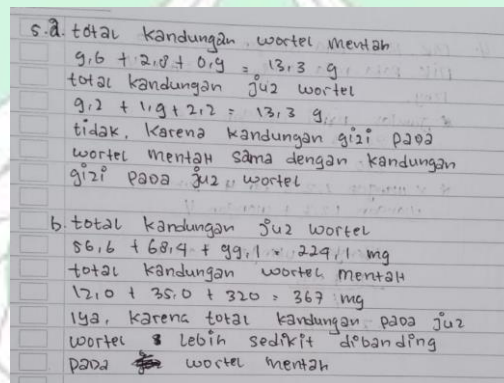 5.a. total kandungan wortel mentah
9,6 + 2,8 + 0,9 = 13,3 g
total kandungan juz wortel
9,2 + 1,9 + 2,2 = 13,3 g
tidak, karena kandungan gizi pada
wortel mentah sama dengan kandungan
gizi pada juz wortel
b. total kandungan juz wortel
56,6 + 68,4 + 99,1 = 224,1 mg
total kandungan wortel mentah
12,0 + 35,0 + 320 = 367 mg
iya, karena total kandungan pada juz
wortel lebih sedikit dibanding
pada wortel mentah